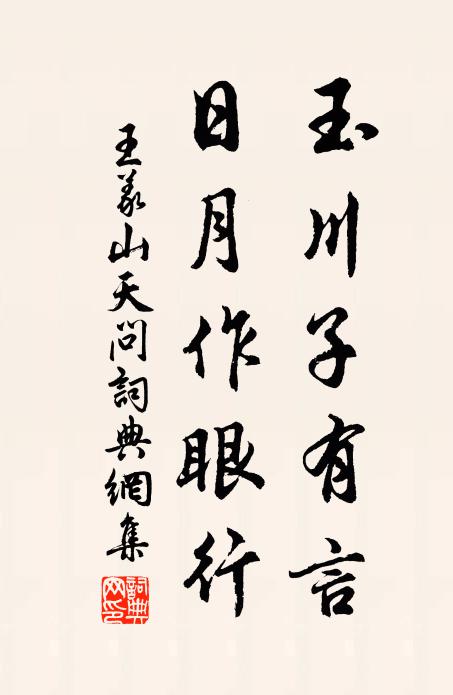 玉川子有言
日月作眼行
王義山天問詞典網集
詞典網印